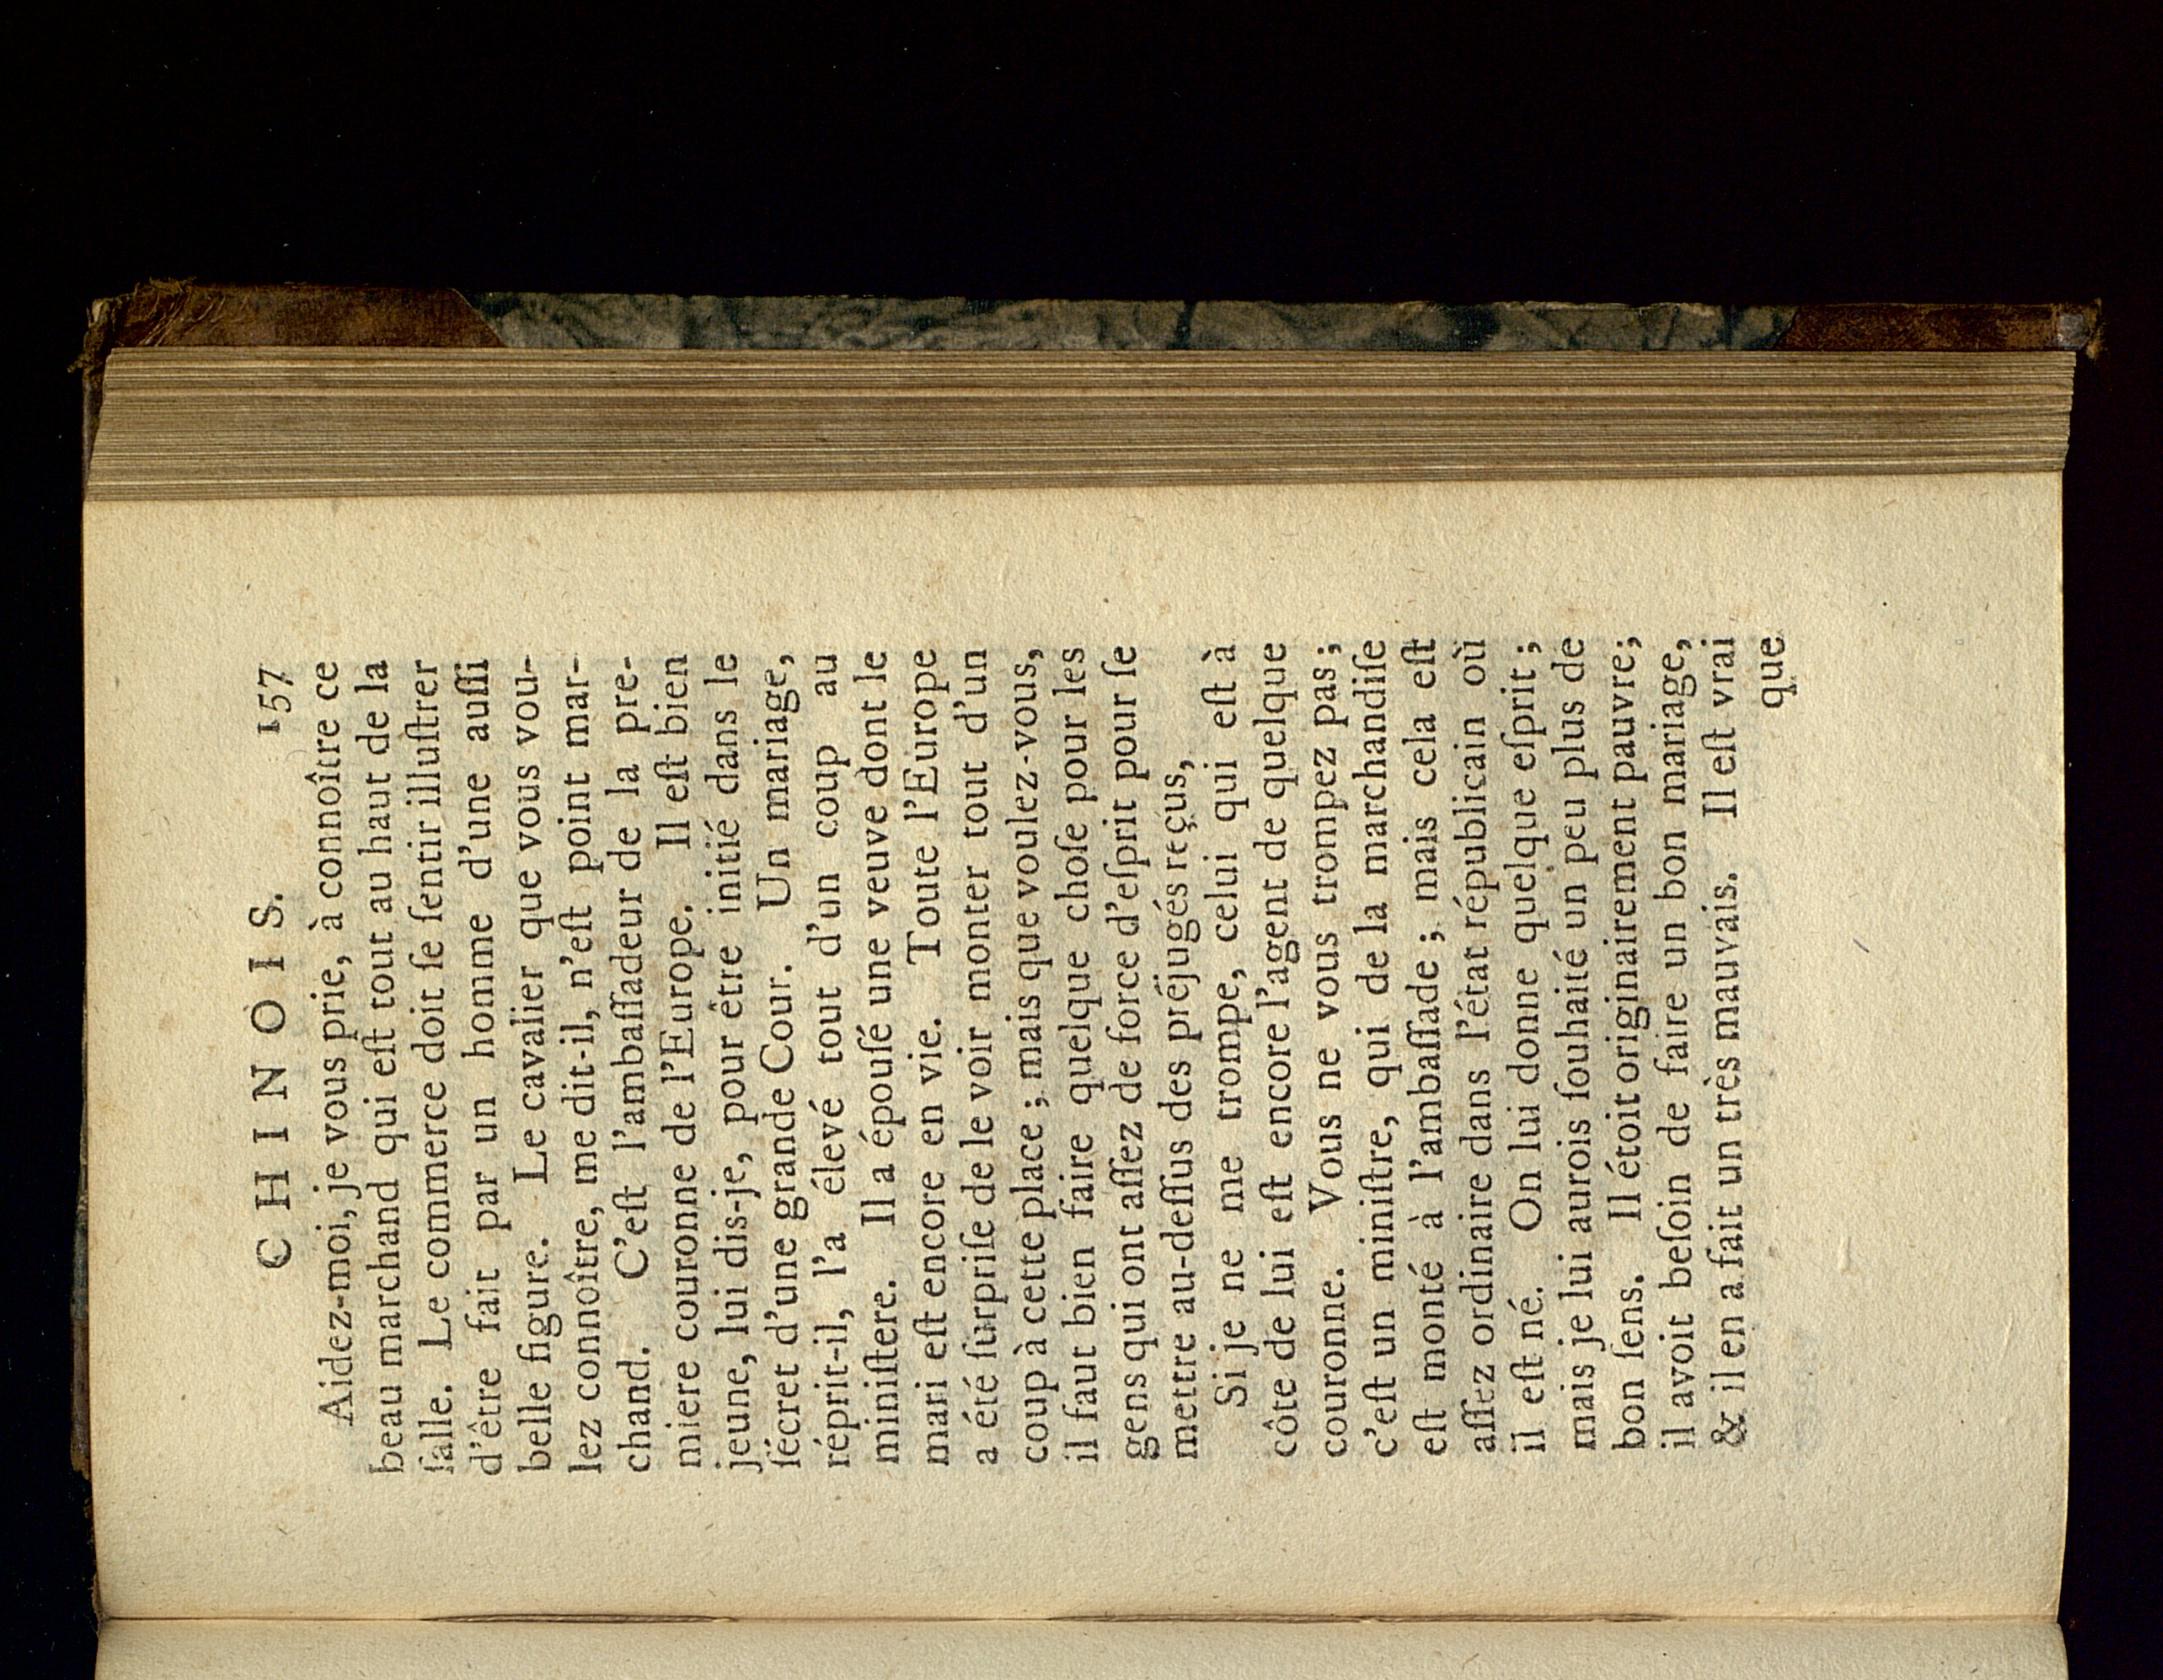 CHINOIS. 157
Aidez-moi, je vous prie, à connoître ce
beau marchand qui eſt tout au haut de la
ſalle. Le commerce doit ſe ſentir illuſtrer
d'être fait par un homme d'une auſſi
belle figure. Le cavalier que vous vou-
lez connoître, me dit-il, n'eſt point mar-
chand. C'eſt l'ambaſſadeur de la pre-
miere couronne de l'Europe. Il eſt bien
jeune, lui dis-je, pour être initié dans le
ſécret d'une grande Cour. Un mariage,
réprit-il, l'a élevé tout d'un coup au
miniſtere. Il a épouſé une veuve dont le
mari eſt encore en vie. Toute l'Europe
a été ſurpriſe de le voir monter tout d'un
coup à cette place ; mais que voulez-vous,
il faut bien faire quelque choſe pour les
gens qui ont aſſez de force d'eſprit pour ſe
mettre au-deſſus des préjugés reçus,
Si je ne me trompe, celui qui eſt à
côte de lui eſt encore l'agent de quelque
couronne. Vous ne vous trompez pas ;
c'eſt un miniſtre, qui de la marchandiſe
eſt monté à l'ambaſſade ; mais cela eſt
aſſez ordinaire dans l'état républicain où
il eſt né. On lui donne quelque eſprit ;
mais je lui aurois ſouhaité un peu plus de
bon ſens. Il étoit originairement pauvre;
il avoit beſoin de faire un bon mariage,
& il en a fait un très mauvais. Il eſt vrai
que